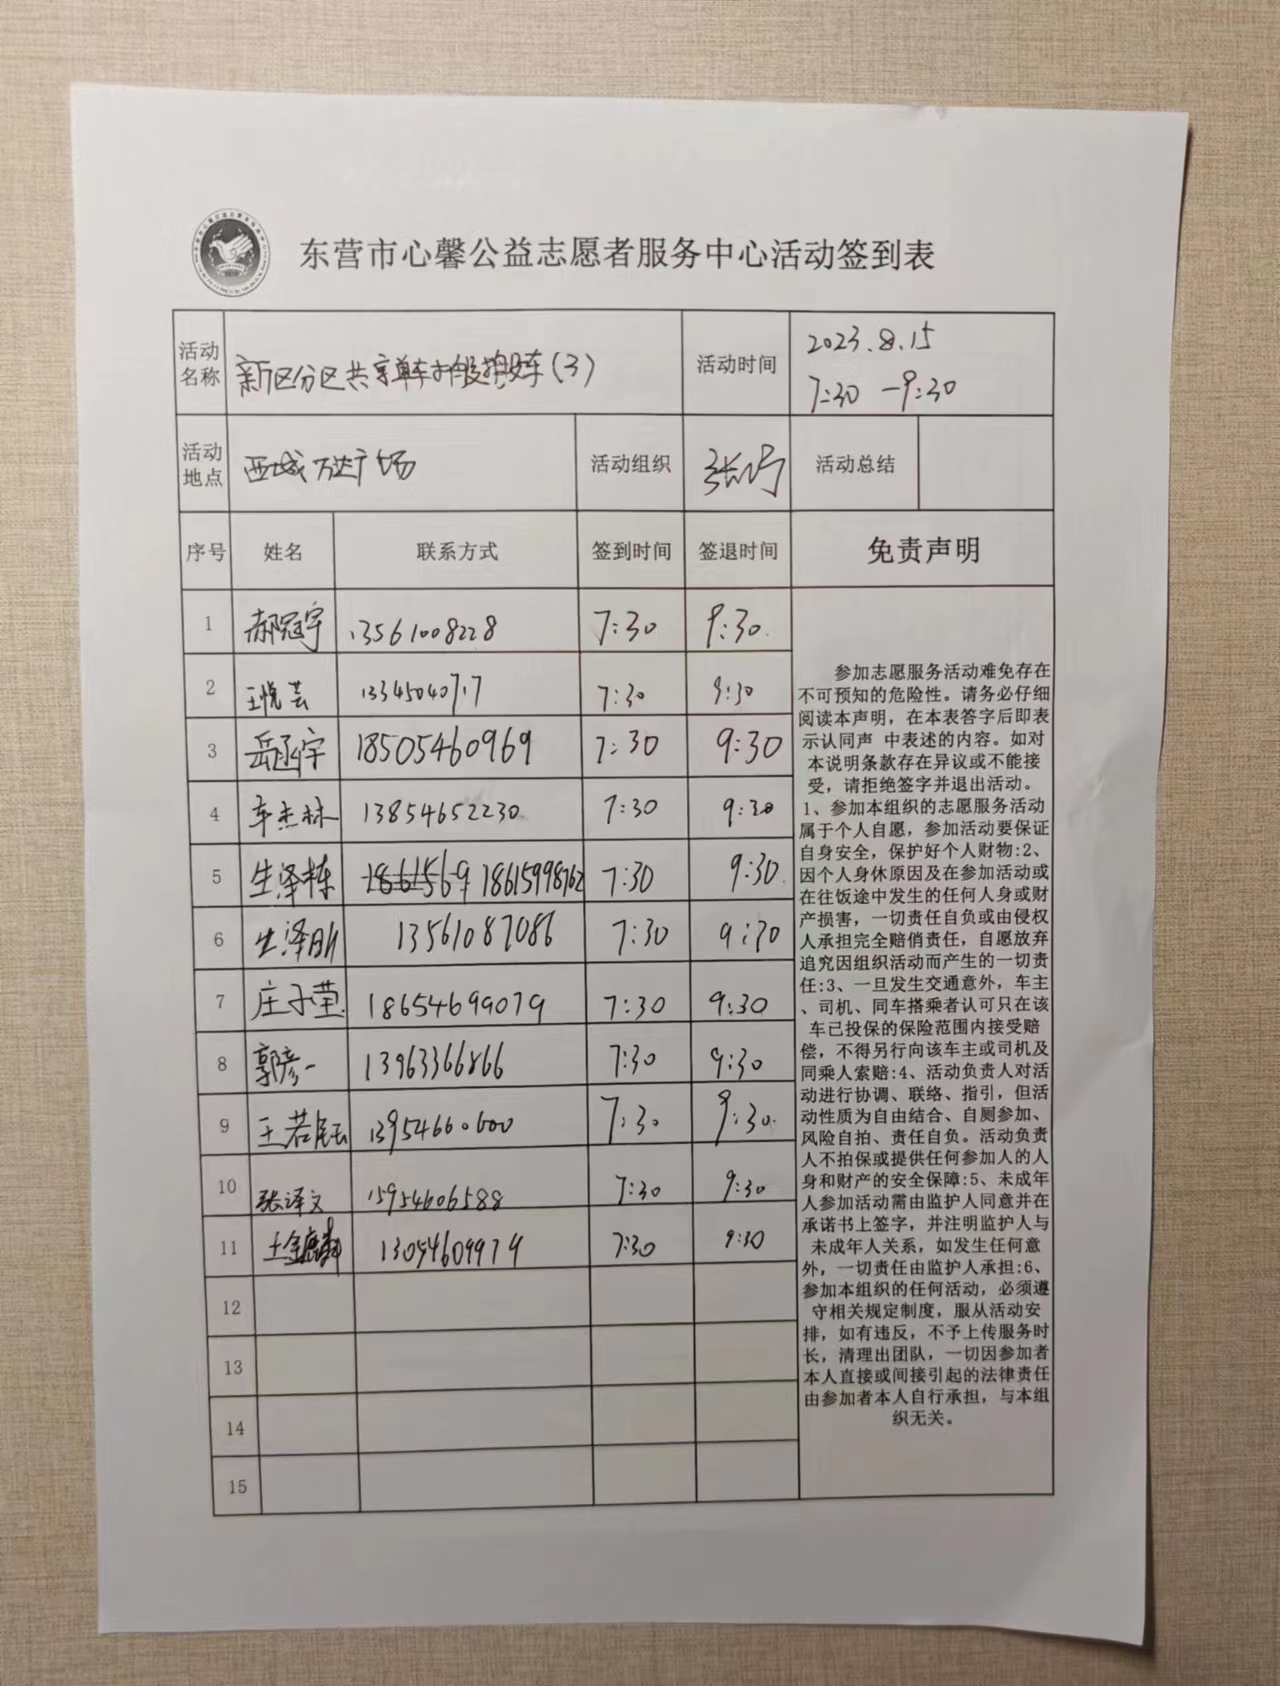 东营市心馨公益志愿者服务中心活动签到表
活动名称 新区分区共享单车 (3) 活动时间 2023.8.15
7:30 — 9:30
活动地点 西城万达广场 活动组织 活动总结
序号 姓名 联系方式 签到时间 签退时间 免责声明
1 郝冠宇 13561008228 7:30 9:30.
2 王悦芸 7:30 9:30
3 岳函宇 18505460969 7:30 9:30
4 车杰林 13854652230 7:30 9:30
5 生泽栋 1861569 18615998762 7:30 9:30
6 生泽明 13561087086 7:30 9:30
7 庄子莹 18654699079 7:30 9:30
8 郭彦一 13963366866 7:30 9:30
9 王若 13954660600 7:30 9:30.
10 张译文 15954606588 7:30 9:30
11 王 13054609979 7:30 9:30
12
13
14
15
参加志愿服务活动难免存在
不可预知的危险性。请务必仔细
阅读本声明，在本表答字后即表
示认同声 中表述的内容。如对
本说明条款存在异议或不能接
受，请拒绝签字并退出活动。
1、参加本组织的志愿服务活动
属于个人自愿，参加活动要保证
自身安全，保护好个人财物:2、
因个人身休原因及在参加活动或
在往饭途中发生的任何人身或财
产损害，一切责任自负或由侵权
人承担完全赔偿责任，自愿放弃
追究因组织活动而产生的一切责
任:3、一旦发生交通意外，车主
、司机、同车搭乘者认可只在该
车已投保的保险范围内接受赔
偿，不得另行向该车主或司机及
同乘人索赔:4、活动负责人对活
动进行协调、联络、指引，但活
动性质为自由结合、自厕参加、
风险自拍、责任自负。活动负责
人不拍保或提供任何参加人的人
身和财产的安全保障:5、未成年
人参加活动需由监护人同意并在
承诺书上签字，并注明监护人与
未成年人关系，如发生任何意
外，一切责任由监护人承担:6、
参加本组织的任何活动，必须遵
守相关规定制度，服从活动安
排，如有违反，不予上传服务时
长，清理出团队，一切因参加者
本人直接或间接引起的法律责任
由参加者本人自行承担，与本组
织无关。